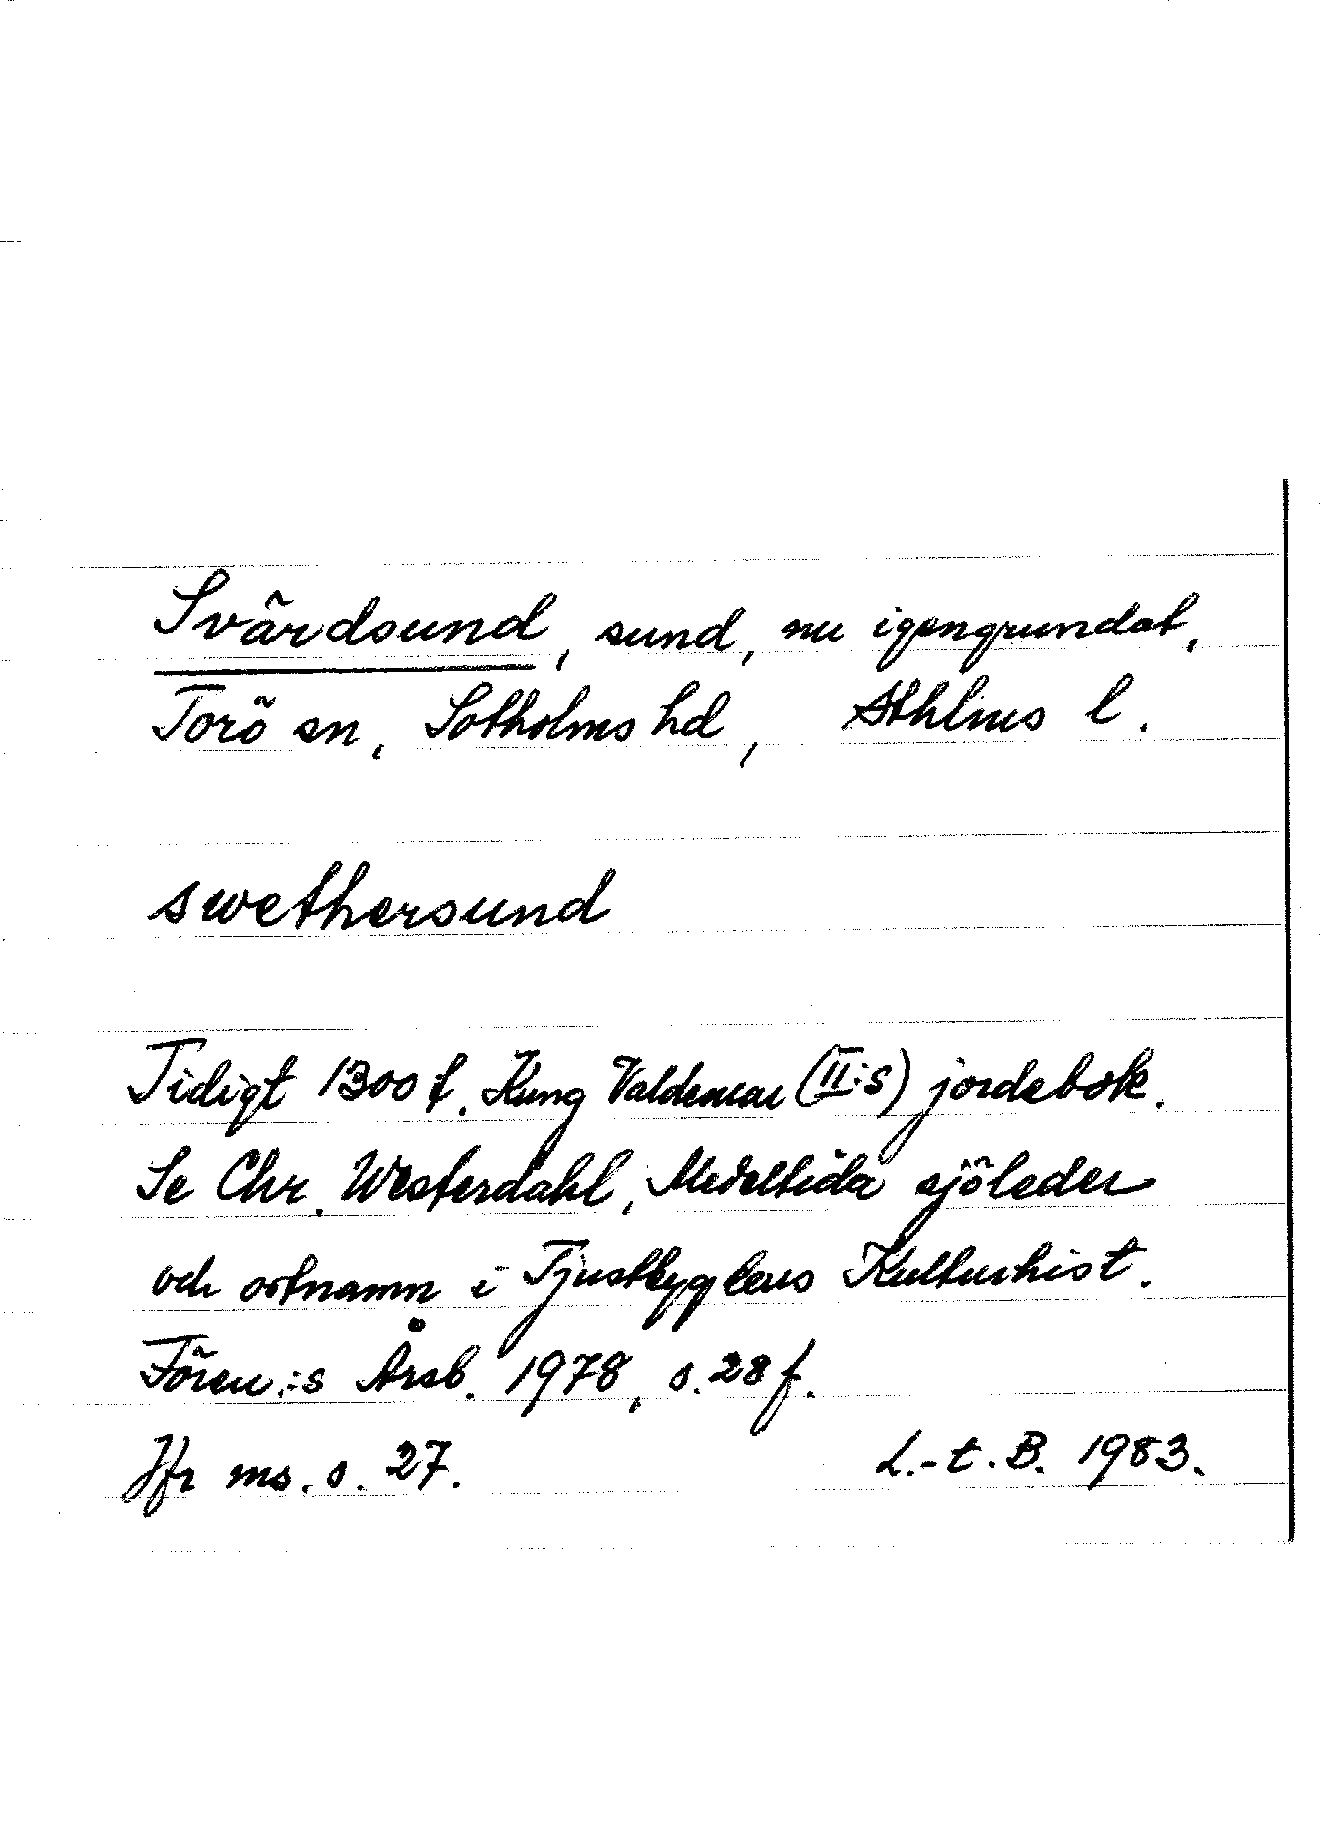 Svärdsund, sund, nu igengrundat,
Torö sn, Sotholms hd, Sthlms l.
swethersund
Tidigt 1300 t. Kung Valdemar (II:s) jordebok.
Se Chr. Westerdahl, Medeltida sjöleder
och ortnamn i Tjustbygdens Kulturhist.
Fören:s Årsb. 1978, s. 28 f.
Jfr ms. s. 27.
L.-t. B. 1983.